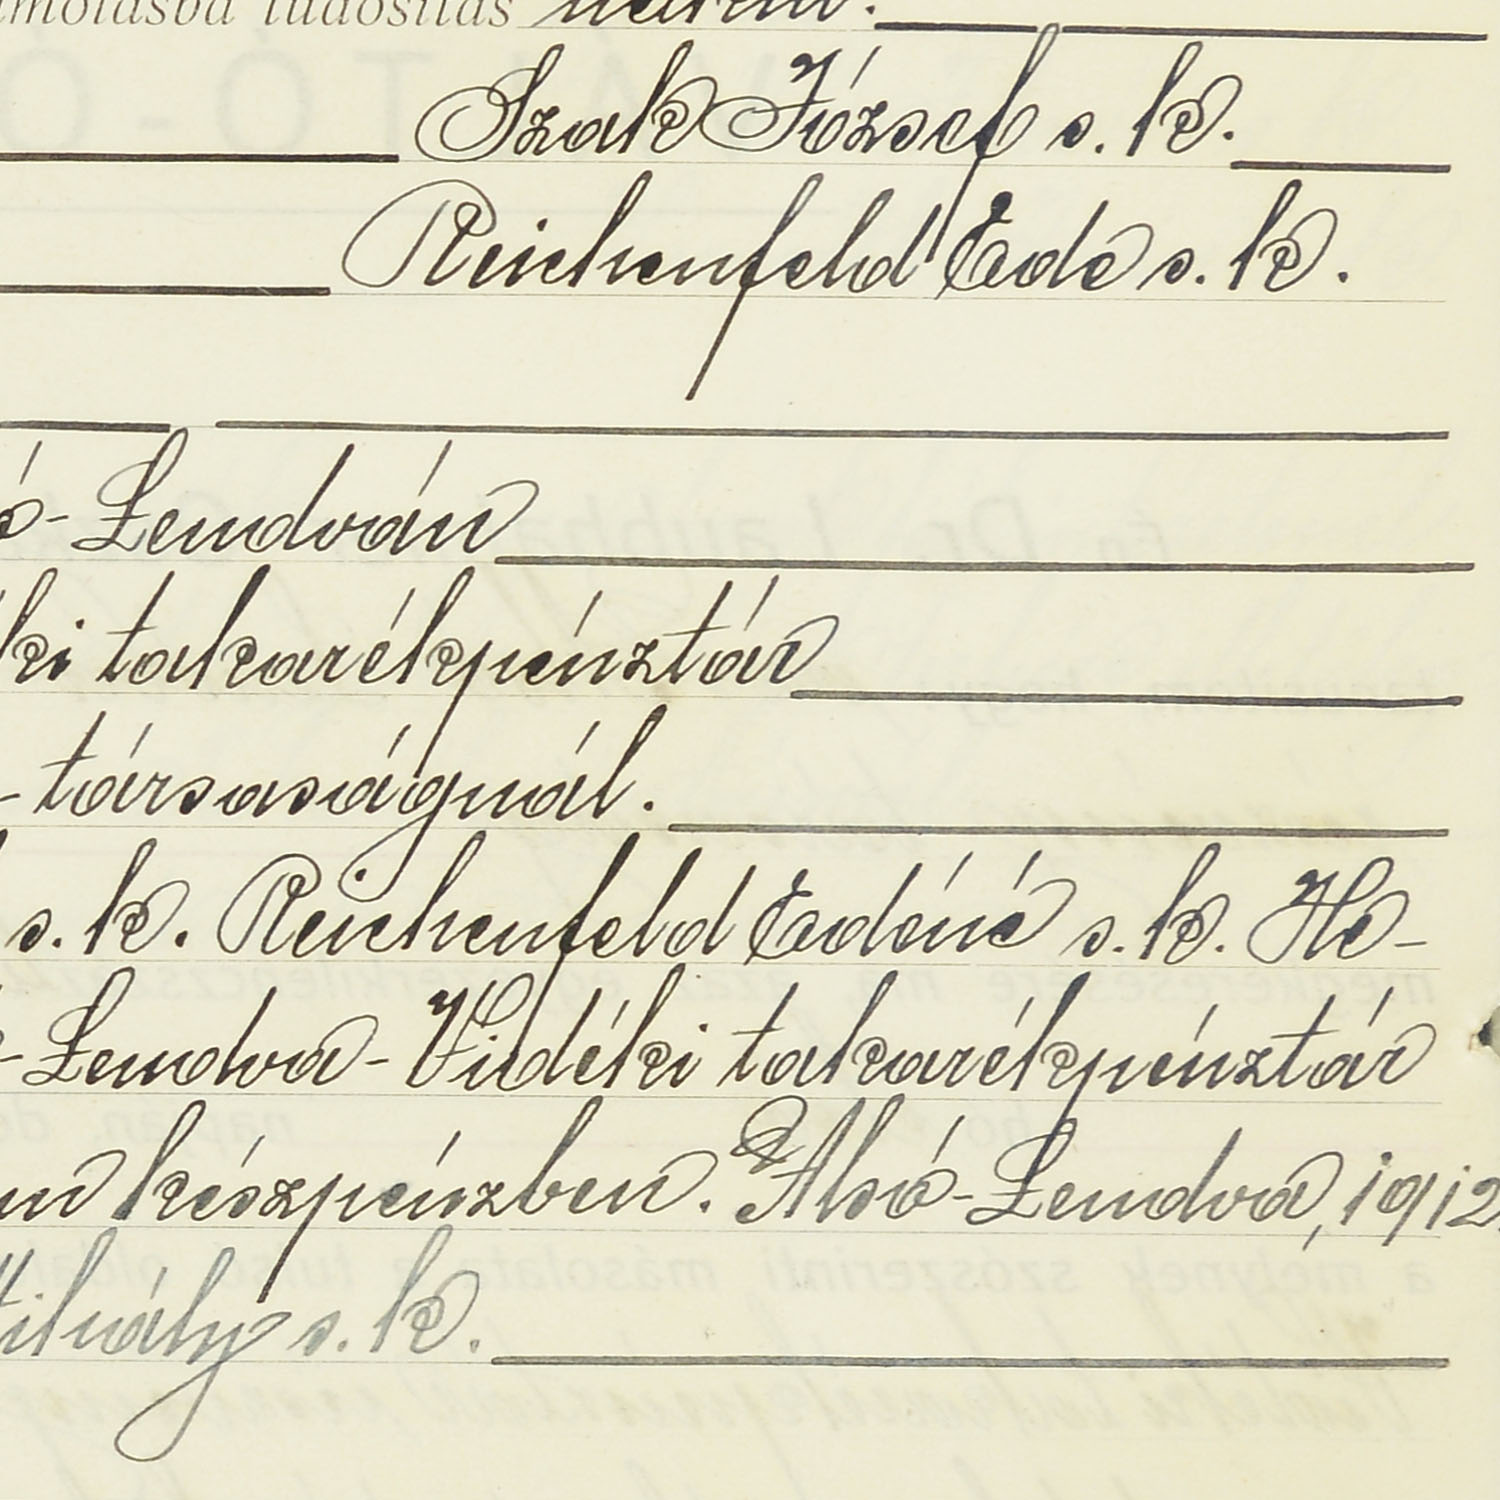 tudósítás
Szak József s. k.
Reichenfeld Ede s. k.
-Lendván
ki takarékpénztár
-társaságnál.
s. k. Reichenfeld Edéné s. k. He-
-Lendva-Vidéki takarékpénztár
készpénzben. Alsó-Lendva, 1912.
Mihály s. k.